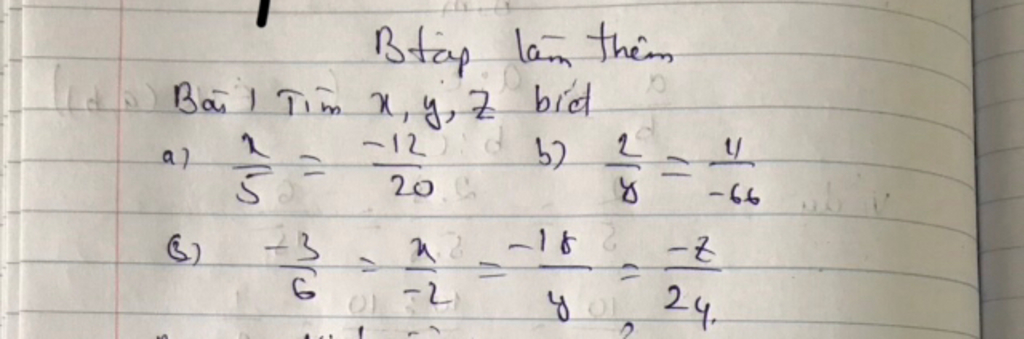 Btập làm thêm
Bài 1 Tìm x, y, z biết
a) x/5 = -12/20 b) 2/y = 11/-66
c) -3/6 = x/-2 = -18/y = -z/24.